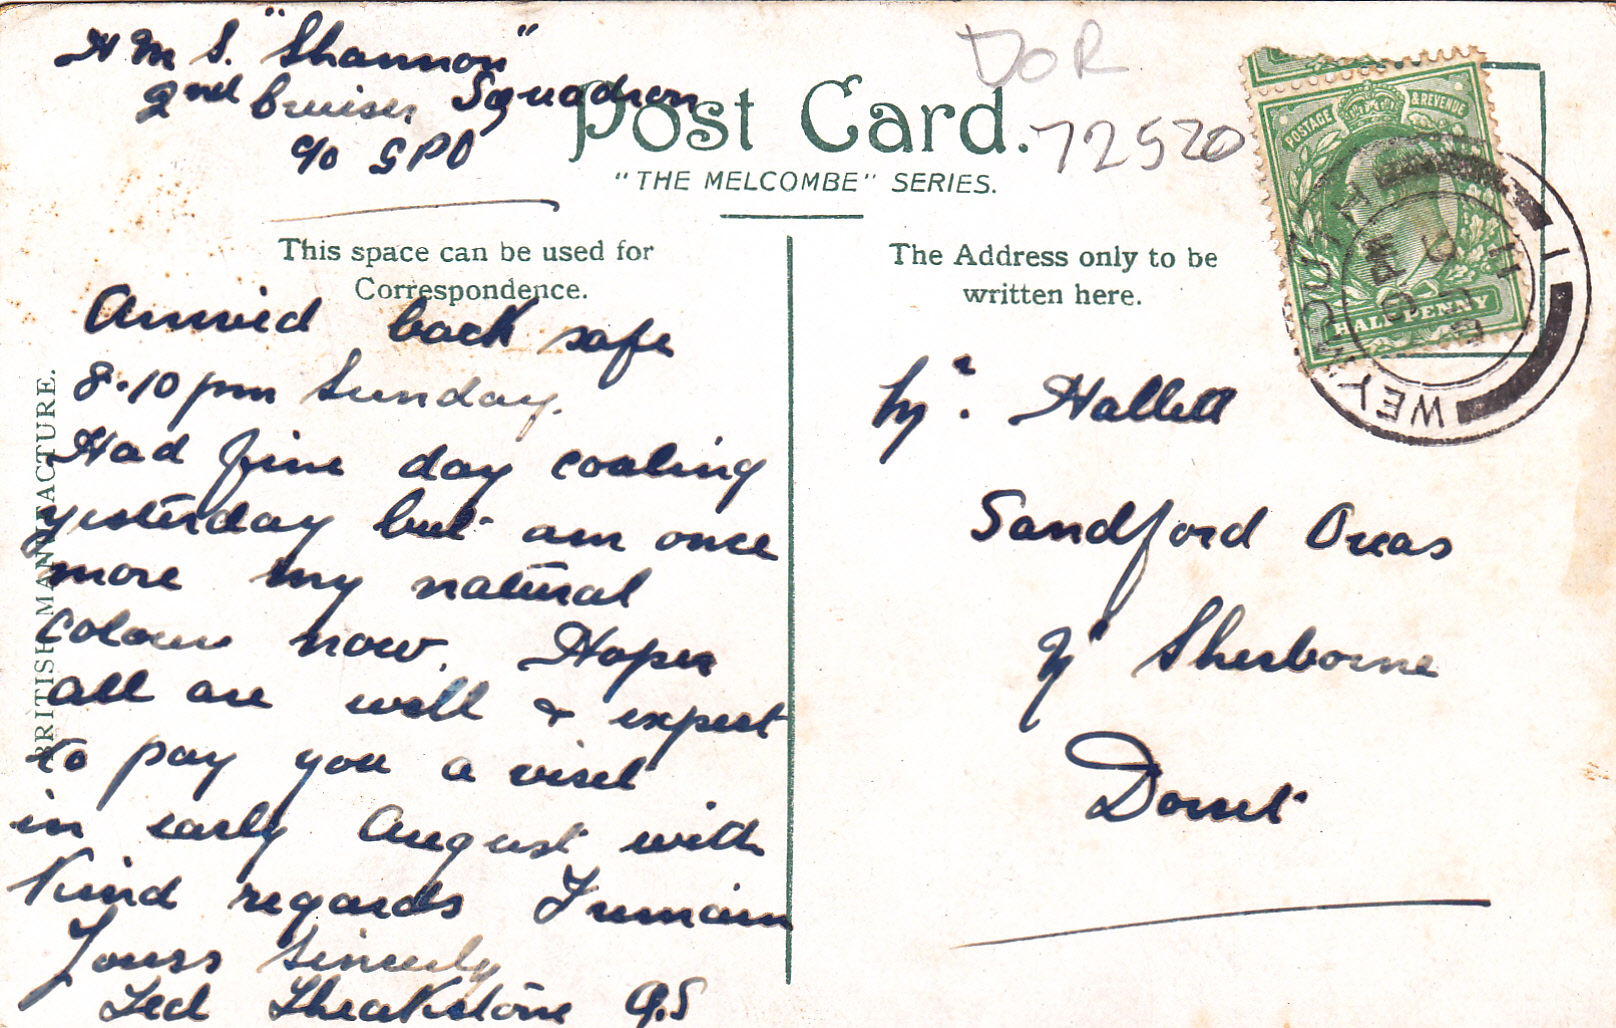 H M S. "Shannon"
2nd Cruiser Squadron
c/o GPO
DOR
72520
Post Card.
"THE MELCOMBE" SERIES.
This space can be used for
Correspondence.
The Address only to be
written here.
POSTAGE & REVENUE
HALFPENNY
WEYMOUTH
BRITISH MANUFACTURE.
Arrived back safe
8.10 pm Sunday.
Had fine day coaling
yesterday but am once
more my natural
colour now. Hopes
all are well & expect
to pay you a visit
in early August with
Kind regards I remain
Yours Sincerely
Ted Sheakstone
Mr. Hallett
Sandford Orcas
Nr Sherborne
Dorset